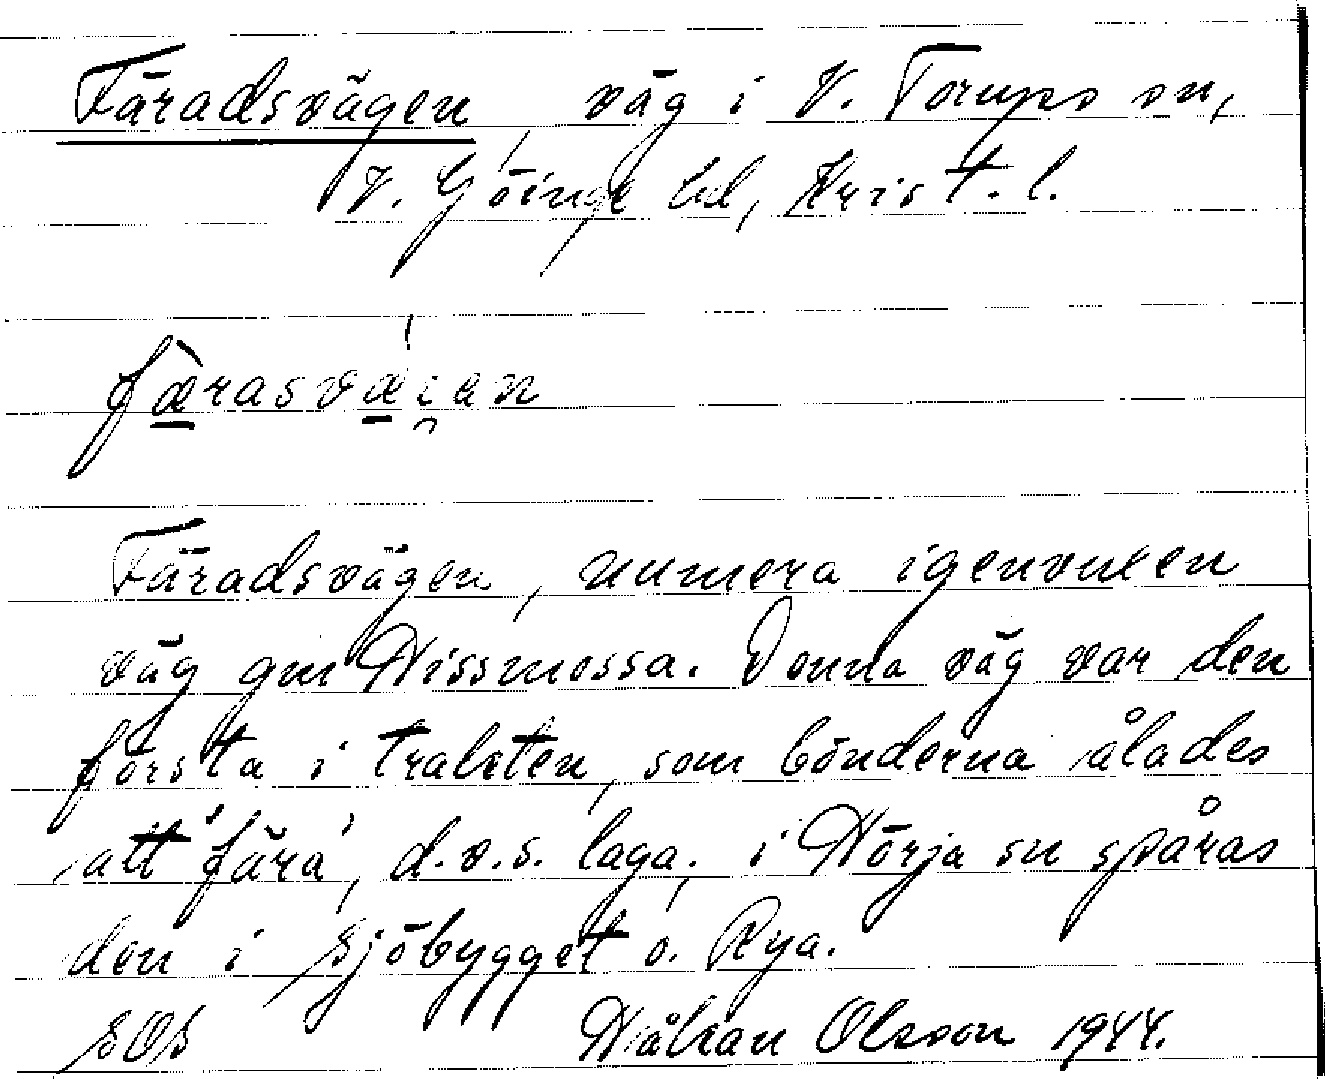 Färadsvägen, väg i V. Torups sn,
V. Göinge hd, Krist. l.
færasvæi̯en
Färadsvägen, numera igenvuxen
väg gm Hissmossa. Denna väg var den
första i trakten, som bönderna ålades
att "fära", d.v.s. laga, i Hörja sn spåras
den i Sjöbygget o. Rya.
SOS Håkan Olsson 1944.